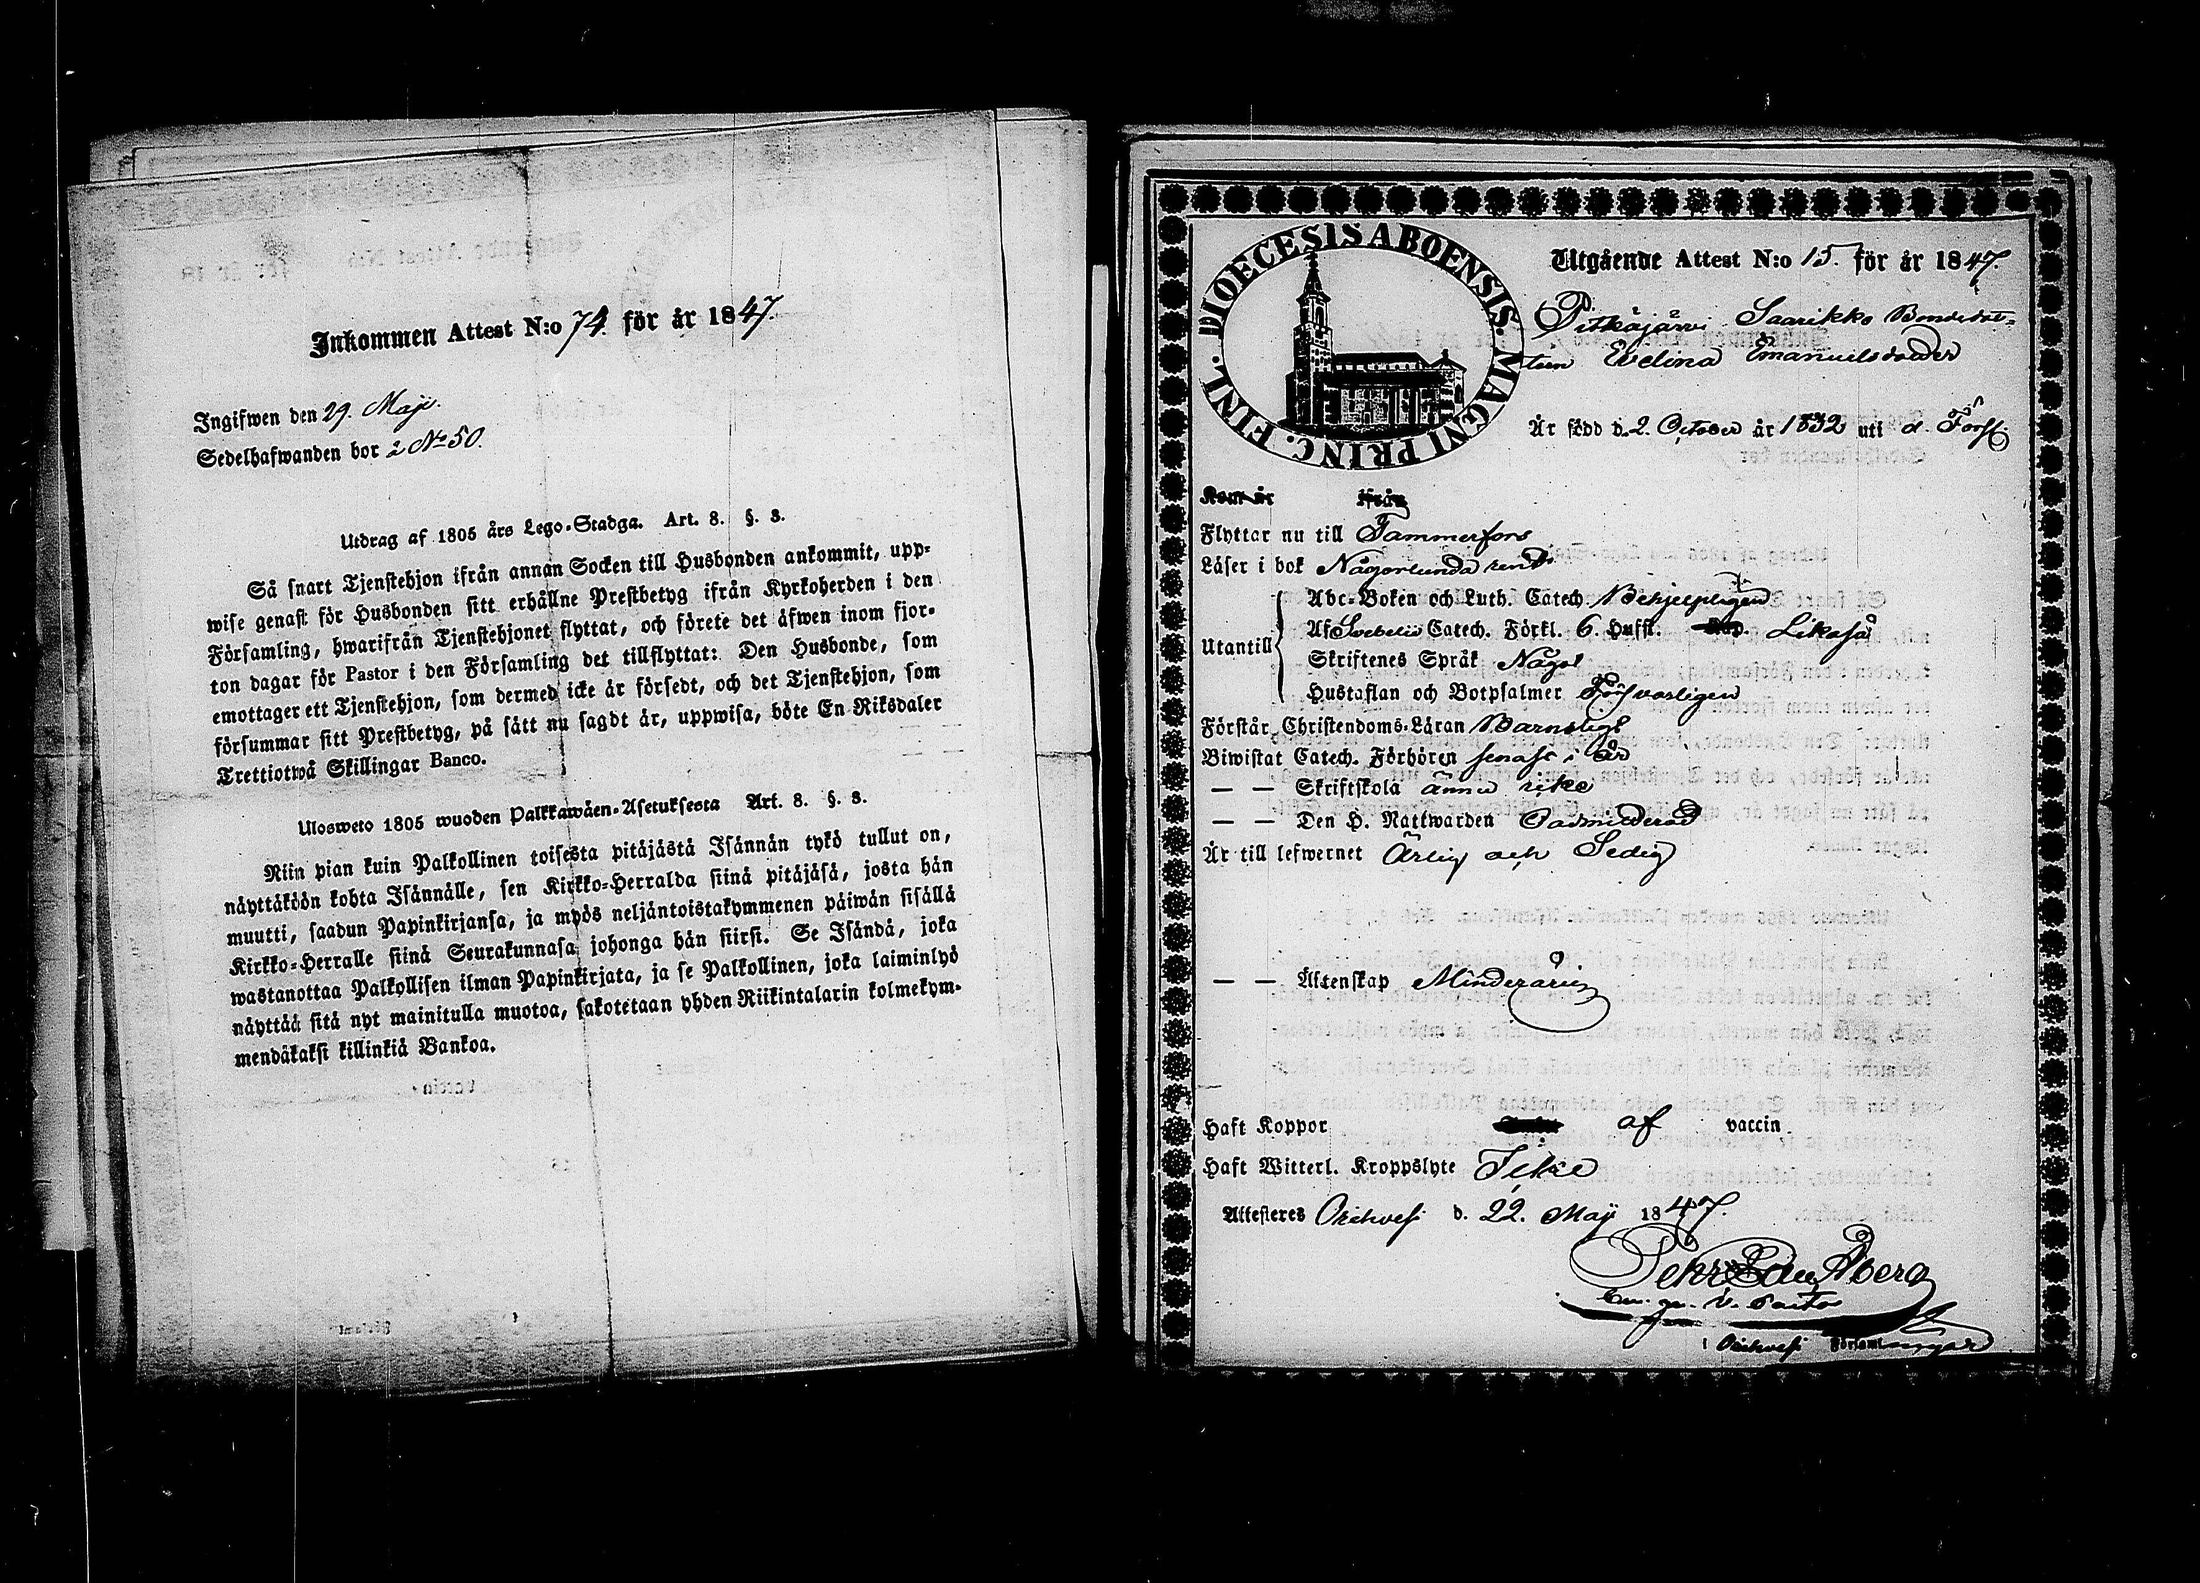 Inkommen Attest N:o 74. för år 1847.
Ingifwen den 29. Maji.
Sedelhafwanden bor å No 50.
Utdrag af 1805 års Lego-Stadga. Art. 8. §. 3.
Så snart Tjenstehjon ifrån annan Socken till Husbonden ankommit, upp-
wise genast för Husbonden sitt erhållne Prestbetyg ifrån Kyrkoherden i den
Församling, hwarifrån Tjenstehjonet flyttat, och förete det äfwen inom fjor-
ton dagar för Pastor i den Församling det tillflyttat: Den Husbonde, som
emottager ett Tjenstehjon, som dermed icke är försedt, och det Tjenstehjon, som
försummar sitt Prestbetyg, på sätt nu sagdt är, uppwisa, böte En Riksdaler
Trettiotwå Skillingar Banco.
Ulosweto 1805 wuoden Palkkawäen-Asetuksesta Art. 8. §. 3.
Niin pian kuin Palkollinen toisesta pitäjästä Isännän tykö tullut on,
näyttäköön kohta Isännälle, sen Kirkko-Herralda siinä pitäjäsä, josta hän
muutti, saadun Papinkirjansa, ja myös neljäntoistakymmenen päiwän sisällä
Kirkko-Herralle siinä Seurakunnasa johonga hän siirsi. Se Isändä, joka
wastanottaa Palkollisen ilman Papinkirjata, ja se Palkollinen, joka laiminlyö
näyttää sitä nyt mainitulla muotoa, sakotetaan yhden Riikintalarin kolmekym-
mendäkaksi killinkiä Bankoa.
DIOECESIS ABOENSIS. MAGNI PRINC. FINL.
Utgående Attest N:o 15. för år 1847.
Pitkäjärvi Saarikko Bondedot-
tren Evelina Emanuelsdotter
Är född d. 2. October år 1832 uti d. Förs.
Kom år ifrån
Flyttar nu till Tammerfors
Läser i bok Någorlunda rent
Utantill
Abc-Boken och Luth. Catech. Behjelpligen
Af Svebelii Catech. Förkl. 6. Hufst. Likaså
Skriftenes Språk Något
Hustaflan och Botpsalmer Försvarligen
Förstår Christendoms-Läran Barnsligt
Biwistat Catech. Förhören senast i år
— — Skriftskola ännu icke
— — Den H. Nattwarden Oadmitterad
Är till lefwernet Ärlig och Sedig
— — Äktenskap Minderårig
Haft Koppor af vaccin
Haft Witterl. Kroppslyte Icke
Attesteres Orihvesi d. 22. Maji 1847.
Pehr Edu. Åberg
v. Pastor
i Orihvesi Församlingar